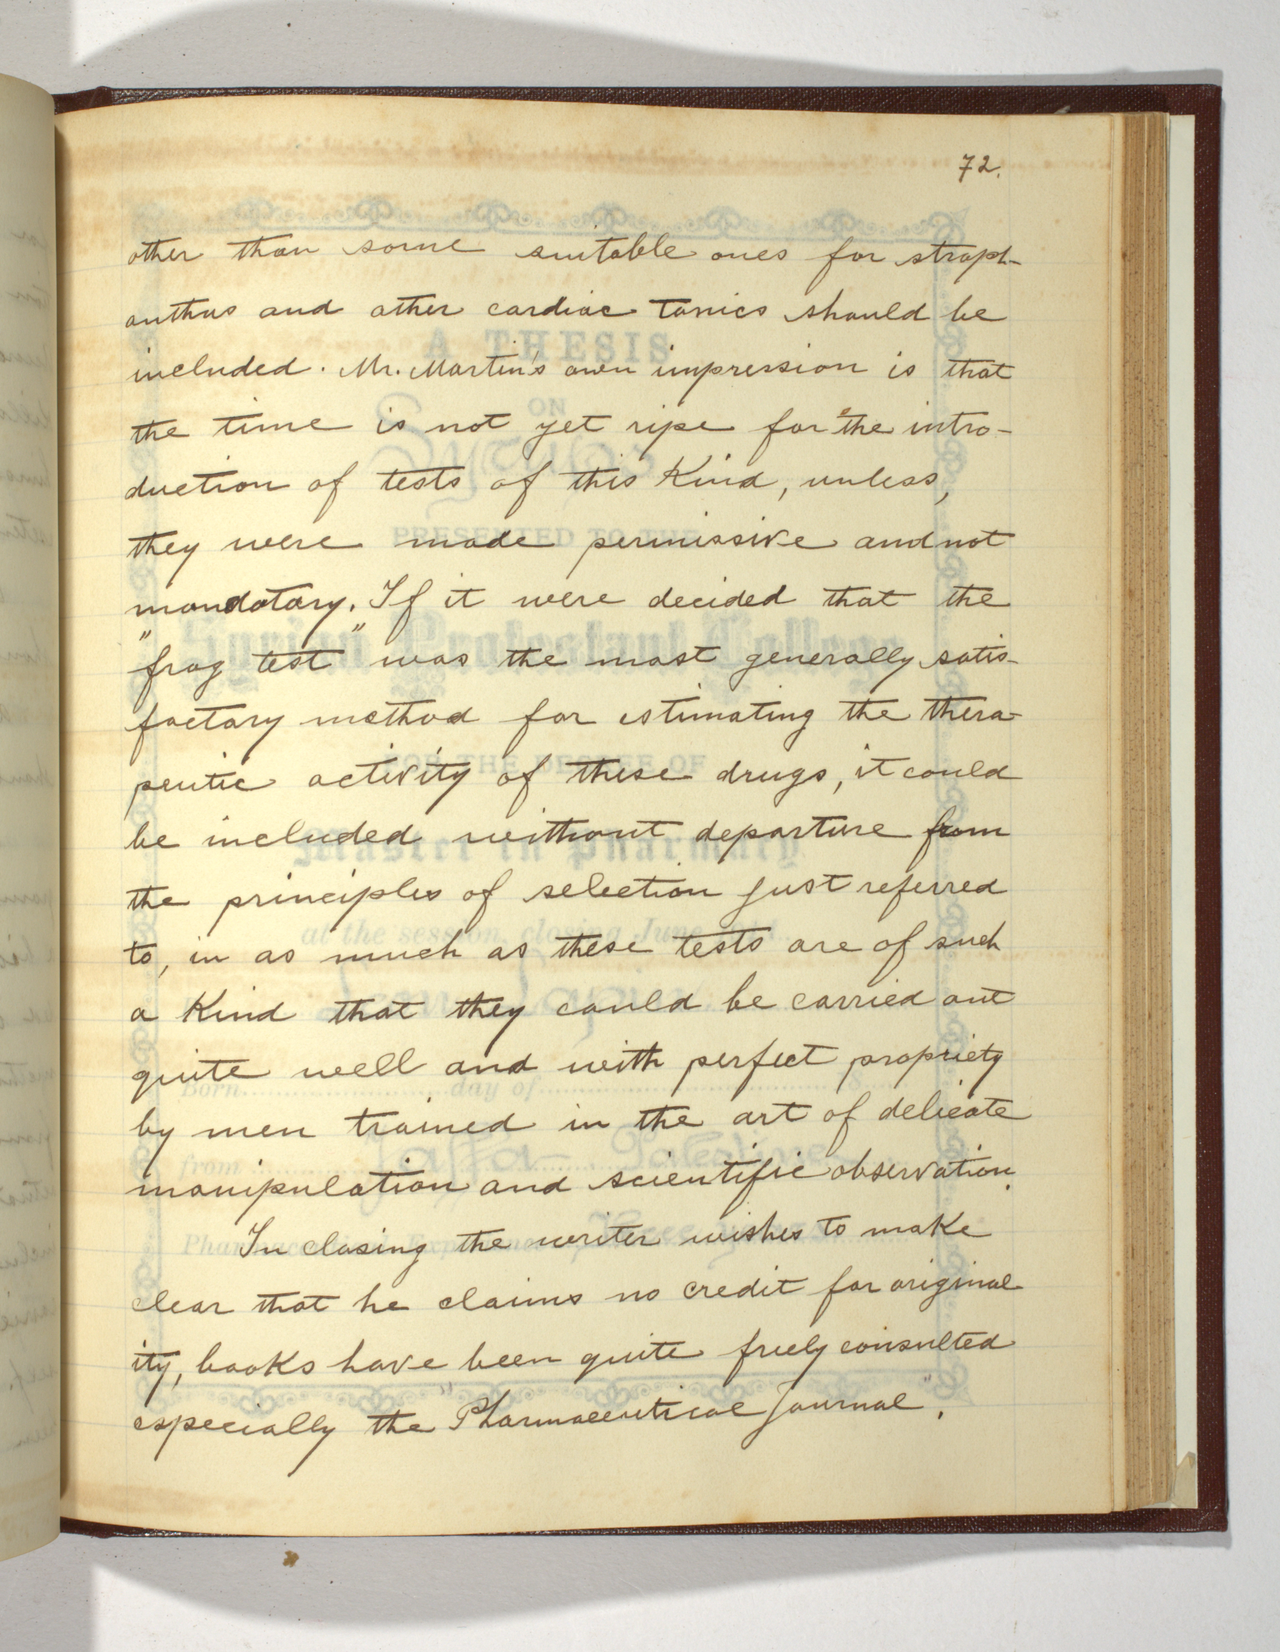 72.
other than some suitable ones for stroph-
anthus and other cardiac tonics should be
included. Mr. Martin's own impression is that
the time is not yet ripe for the intro-
duction of tests of this Kind, unless,
they were made permissive and not
mandatory. If it were decided that the
"frog test" was the most generally satis-
factory method for estimating the thera-
peutic activity of these drugs, it could
be included without departure from
the principles of selection just referred
to, in as much as these tests are of such
a Kind that they could be carried out
quite well and with perfect propriety
by men trained in the art of delicate
manipulation and scientific observation.
In closing the writer wishes to make
clear that he claims no credit for original
ity, books have been quite freely consulted
especially the "Pharmaceutical Journal".
A THESIS
ON
PRESENTED TO THE
Syrian Protestant College
FOR THE DEGREE OF
Master in Pharmacy
at the session closing June
Born day of
from Jaffa Palestine